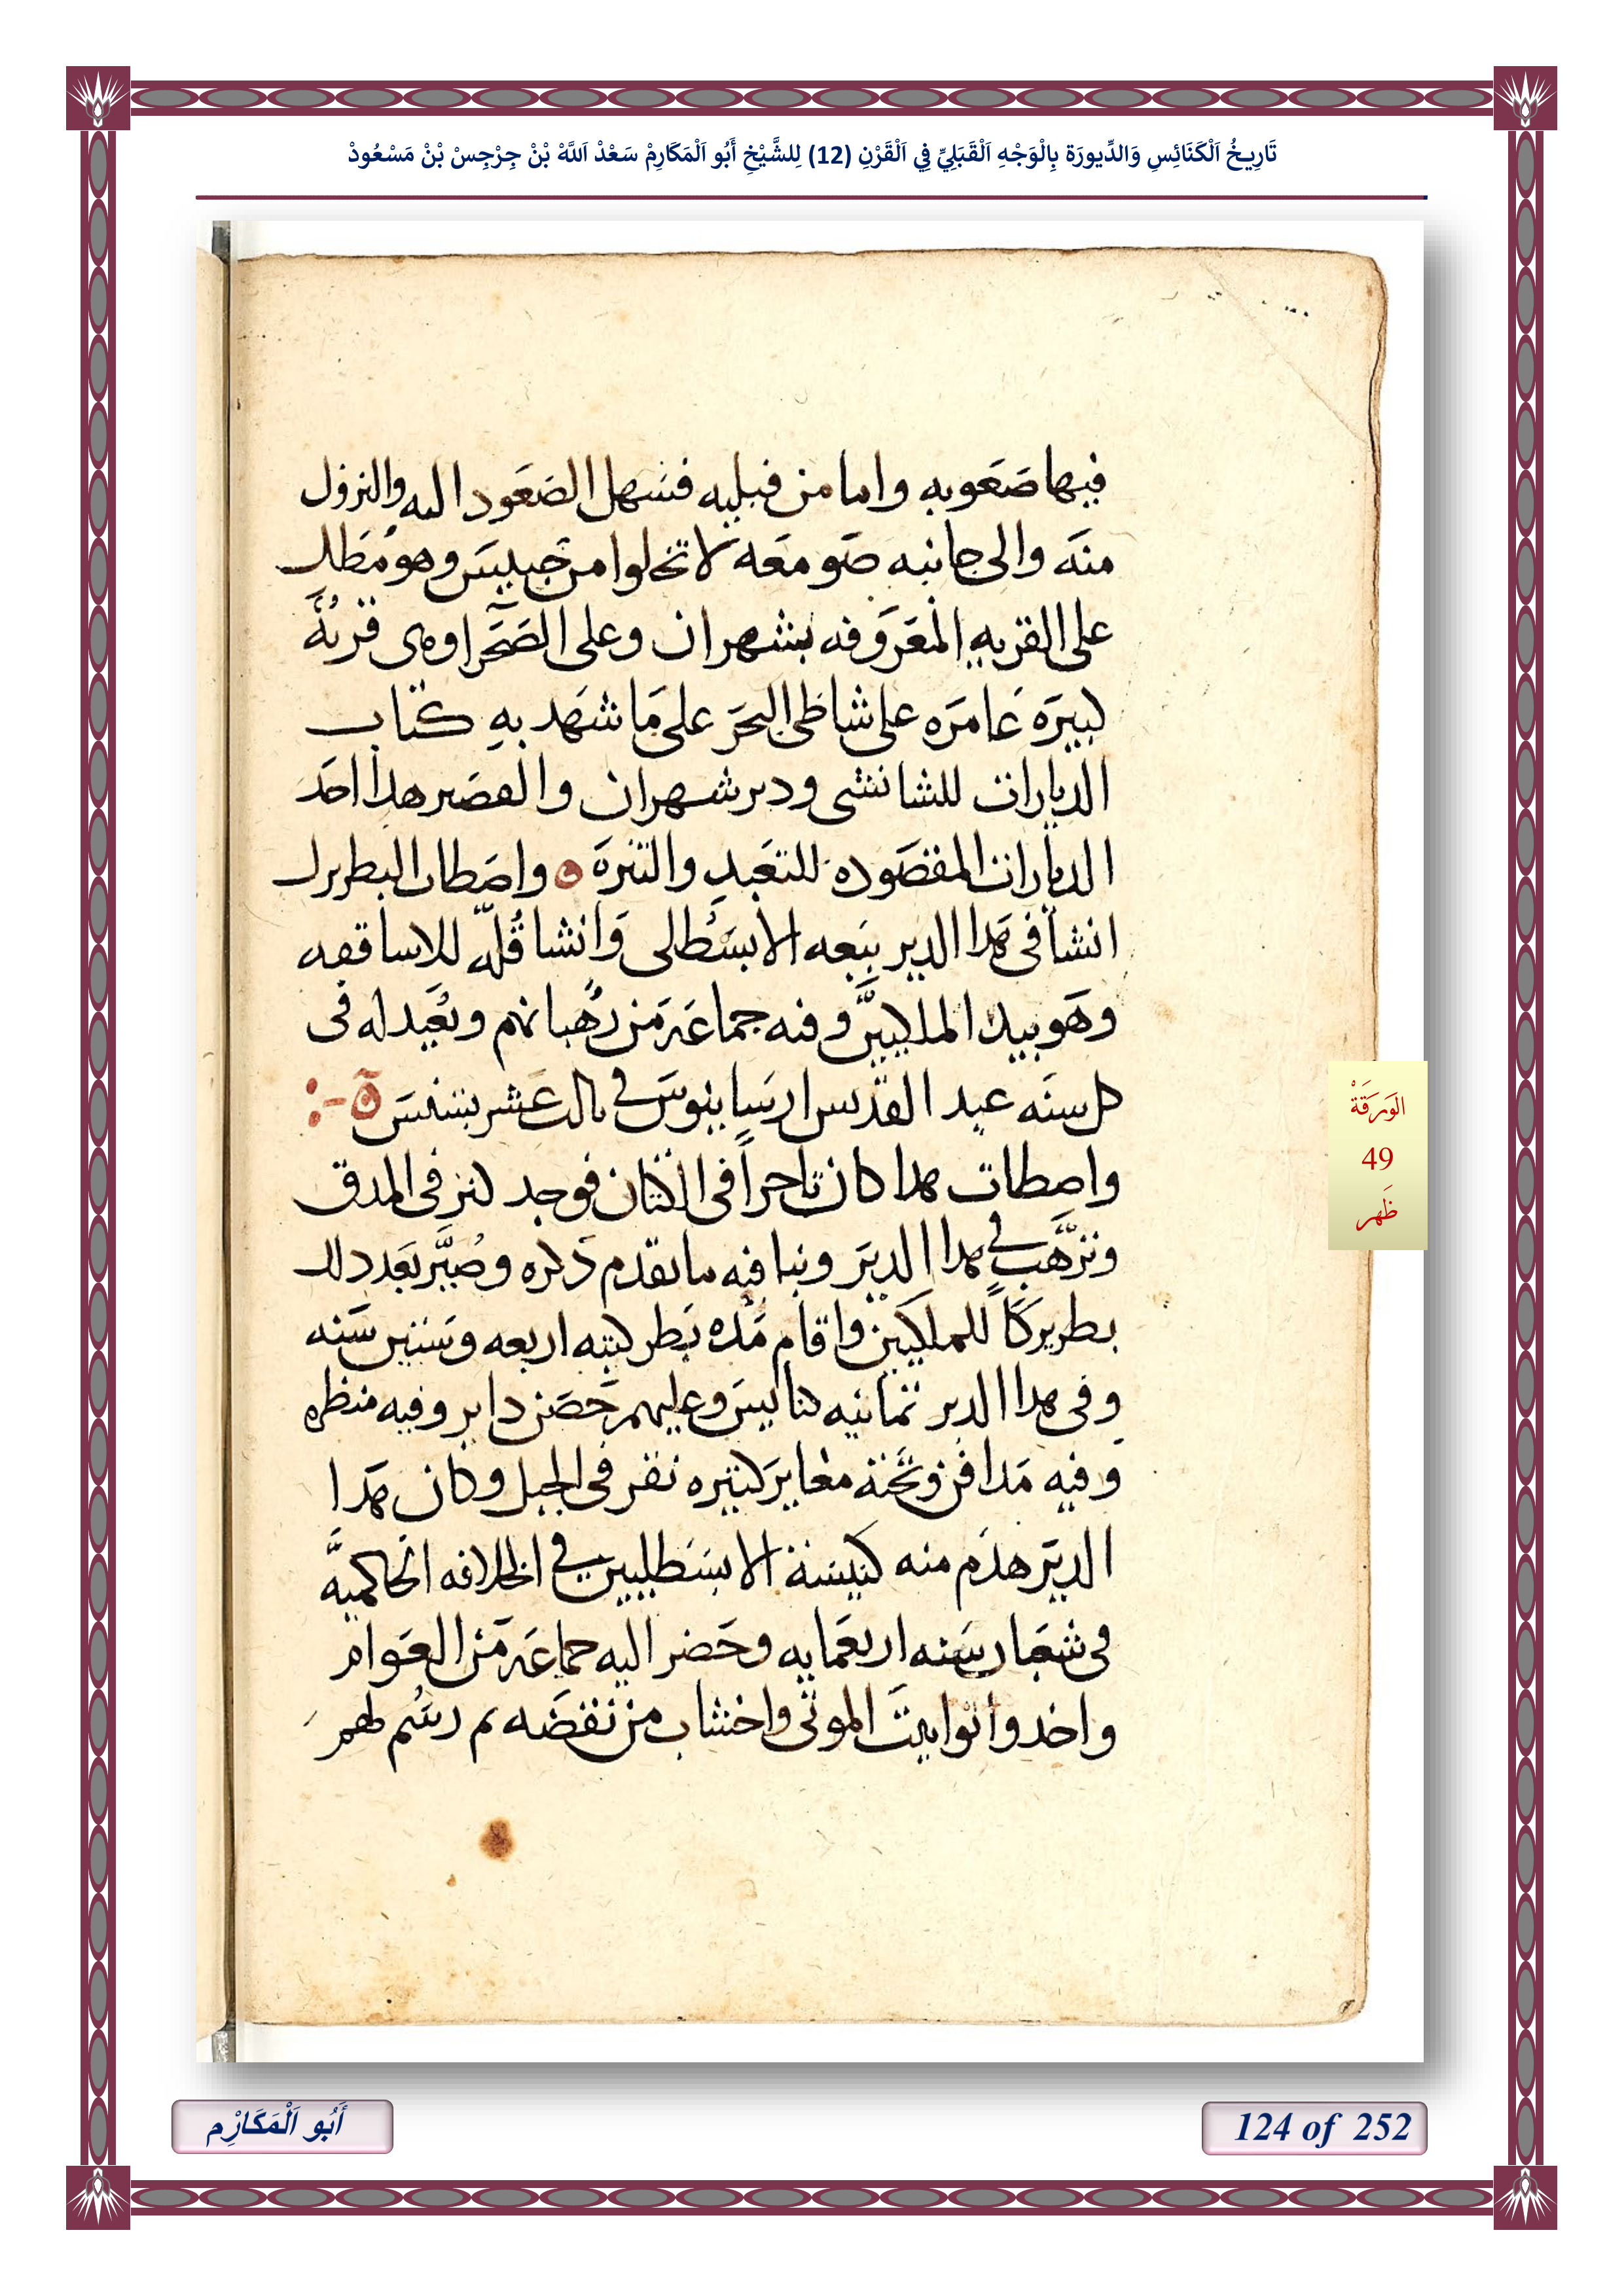 تَارِيخُ اَلْكَنَائِسِ وَالدِّيورَة بِالْوَجْهِ اَلْقَبَلِيِّ فِي اَلْقَرْنِ (12) لِلشَّيْخِ أَبُو اَلْمَكَارِمْ سَعْدْ اَللَّهْ بْنْ جِرْجِسْ بْنْ مَسْعُودْ
فيها صَعَوبه واما من قبليه فسهل الصَعَود اليه والنزول
منَه والى جانبه صَومَعَه لا تخلوا من حَبيسَ وهوُ مَطل
على القريه المَعَروَفه بشهران وعلى الصَحَرا وهى قريُةَ
كبيرَه عَامرَه على شاطى البحَرَ على مَا شهَد بهِ كتاب
الديارات للشابشتى ودير شهران والقصَير هدا احَد
الديارات المقصَوده للتعَبد والتنزهَ ه واصَطات البطريرك
انشا فى هَدا الدير بيَعه الابسَطلى وَانشا قُلّه للاساقفه
وهَو بيد الملكييَّن وفيه جماعَة مَن رُهَبانهم وتعُيد له فى
كل سنَه عيد القدسَ ارسَانيوسَ في تالت عَشر بشنسَ ه
واصَطات هدا كان تاجراً فى الكتان فوجد كنز فى المدق
وترَّهب في هدا الديَر وبنا فيه ما تقدم دَكره وصُيَّر بعَد دلك
بطريركاً للملكيَين واقام مَدُه بَطركيته اربعه وسَتين سَنه
وفى هدا الدير تمانيه كنايسَ وعليهم حَصَن داير وفيه منظره
وفيه مَدافن وتحَته مغاير كتيره نقر فى الجبل وكان هَدا
الديَر هدَم منه كنيسَة الابسَطليين في الخلافه الحَاكميَّه
فى شعَبان سَنه اربعَمايه وحَضر اليه جماعَة مَن العَوام
واخدوا توابيتَ الموتى واخشاب من نقضَه تم رسُم لهمَ
الوَرَقَةْ
49
ظَهر
أَبُو اَلْمَكَارْمِ
124 of 252